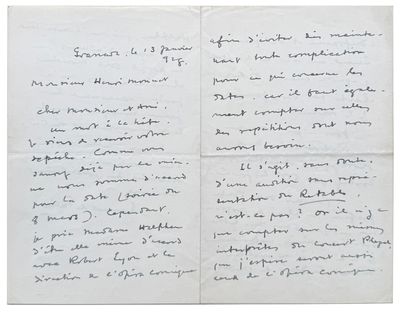 Grenade, le 13 janvier
928.
Monsieur Henri Monnet
Cher Monsieur et Ami,
un mot à la hâte.
Je viens de recevoir votre
dépêche. Comme vous
savez déjà par la mien-
ne nous sommes d'accord
pour la date (soirée du
8 mars). Cependant,
je prie Madame Halphen
d'être elle même d'accord
avec Robert Lyon et la
direction de l'Opéra Comique
afin d'éviter dès mainte-
nant toute complication
pour ce qui concerne les
dates, car il faut égale-
ment compter sur celles
des répétitions dont nous
aurons besoin.
Il s'agit, sans doute,
d'une audition sans repré-
sentation du Retable,
n'est-ce pas? Or il n'y a
que compter sur les mêmes
interprètes du concert Pleyel
que j'espère seront aussi
ceux de l'Opéra Comique.